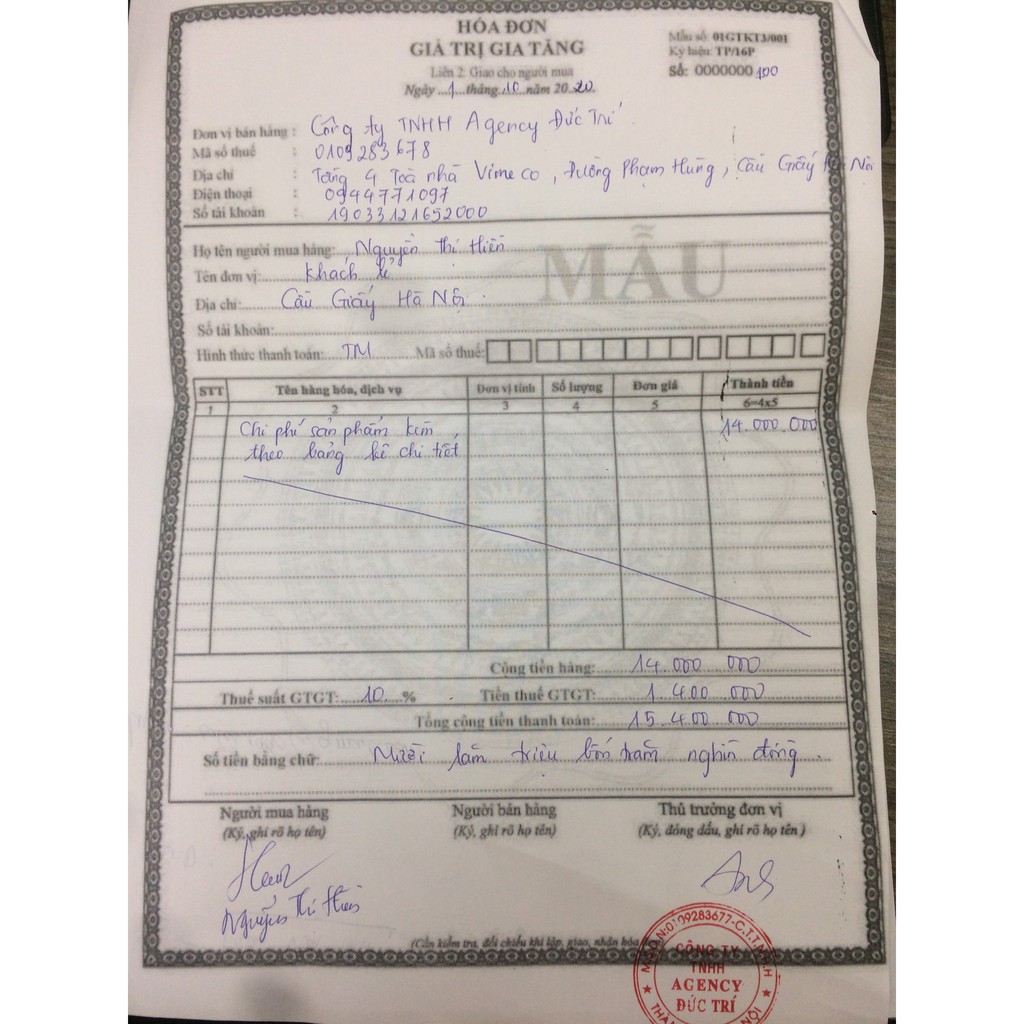 HÓA ĐƠN
GIÁ TRỊ GIA TĂNG
Liên 2: Giao cho người mua
Ngày 1 tháng 10 năm 2020
Mẫu số: 01GTKT3/001
Ký hiệu: TP/16P
Số: 0000000100
Đơn vị bán hàng : Công ty TNHH Agency Đức Trí
Mã số thuế : 0109283678
Địa chỉ : Tầng 4 Toà nhà Vimeco, Đường Phạm Hùng, Cầu Giấy Hà Nội
Điện thoại : 0944771097
Số tài khoản : 19033121652000
MẪU
Họ tên người mua hàng: Nguyễn Thị Hiền
Tên đơn vị: Khách lẻ
Địa chỉ: Cầu Giấy Hà Nội
Số tài khoản:
Hình thức thanh toán: TM Mã số thuế:
STT Tên hàng hóa, dịch vụ Đơn vị tính Số lượng Đơn giá Thành tiền
1 2 3 4 5 6=4x5
Chi phí sản phẩm kèm 14.000.000
theo bảng kê chi tiết
Cộng tiền hàng: 14.000 000
Thuế suất GTGT: 10 % Tiền thuế GTGT: 1.400 000
Tổng cộng tiền thanh toán: 15.400 000
Số tiền bằng chữ: Mười lăm triệu bốn trăm nghìn đồng
Người mua hàng Người bán hàng Thủ trưởng đơn vị
(Ký, ghi rõ họ tên) (Ký, ghi rõ họ tên) (Ký, đóng dấu, ghi rõ họ tên )
Nguyễn Thị Hiền
(Cần kiểm tra, đối chiếu khi lập, giao, nhận hóa
0109283677-C.T.T.N.H.H
CÔNG TY
TNHH
AGENCY
ĐỨC TRÍ